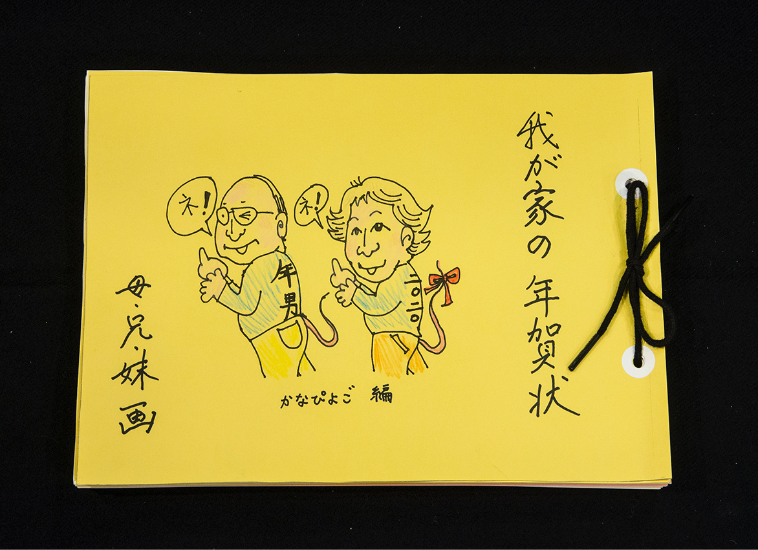 我が家の年賀状
ネ!
年男
ネ!
二〇二〇
かなぴよご 編
母・兄・妹 画